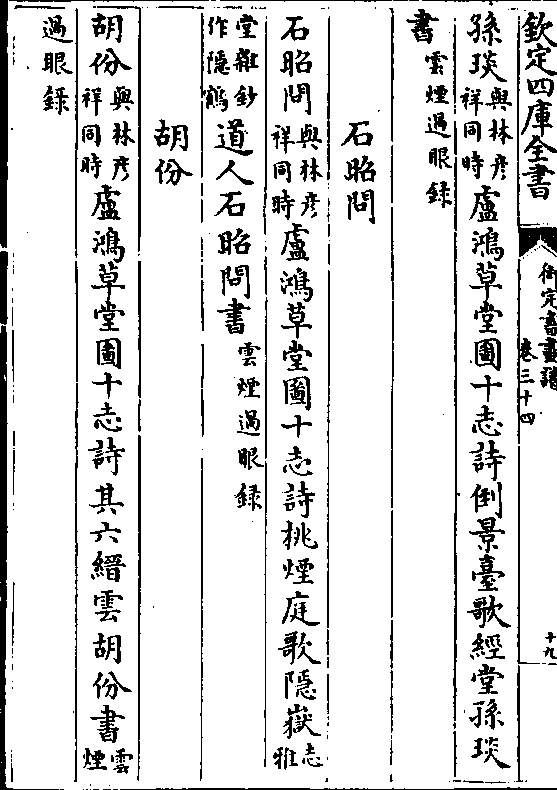 欽定四庫全書
御定書畫譜
卷三十四
十九
孫琰與林彥祥同時盧鴻草堂圖十志詩倒景臺歌經堂孫琰
書雲煙過眼錄
石昭問
石昭問與林彥祥同時盧鴻草堂圖十志詩桃煙庭歌隱嶽志雅
堂雜鈔作隱鶴道人石昭問書雲煙過眼錄
胡份
胡份與林彥祥同時盧鴻草堂圖十志詩其六縉雲胡份書雲煙
過眼錄